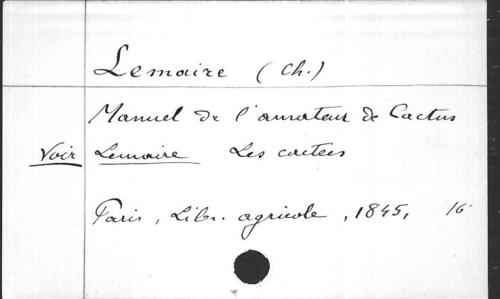 Lemaire (Ch.)
Manuel de l'amateur de Cactus
Voir Lemaire Les cactées
Paris, Libr. agricole, 1845, 16